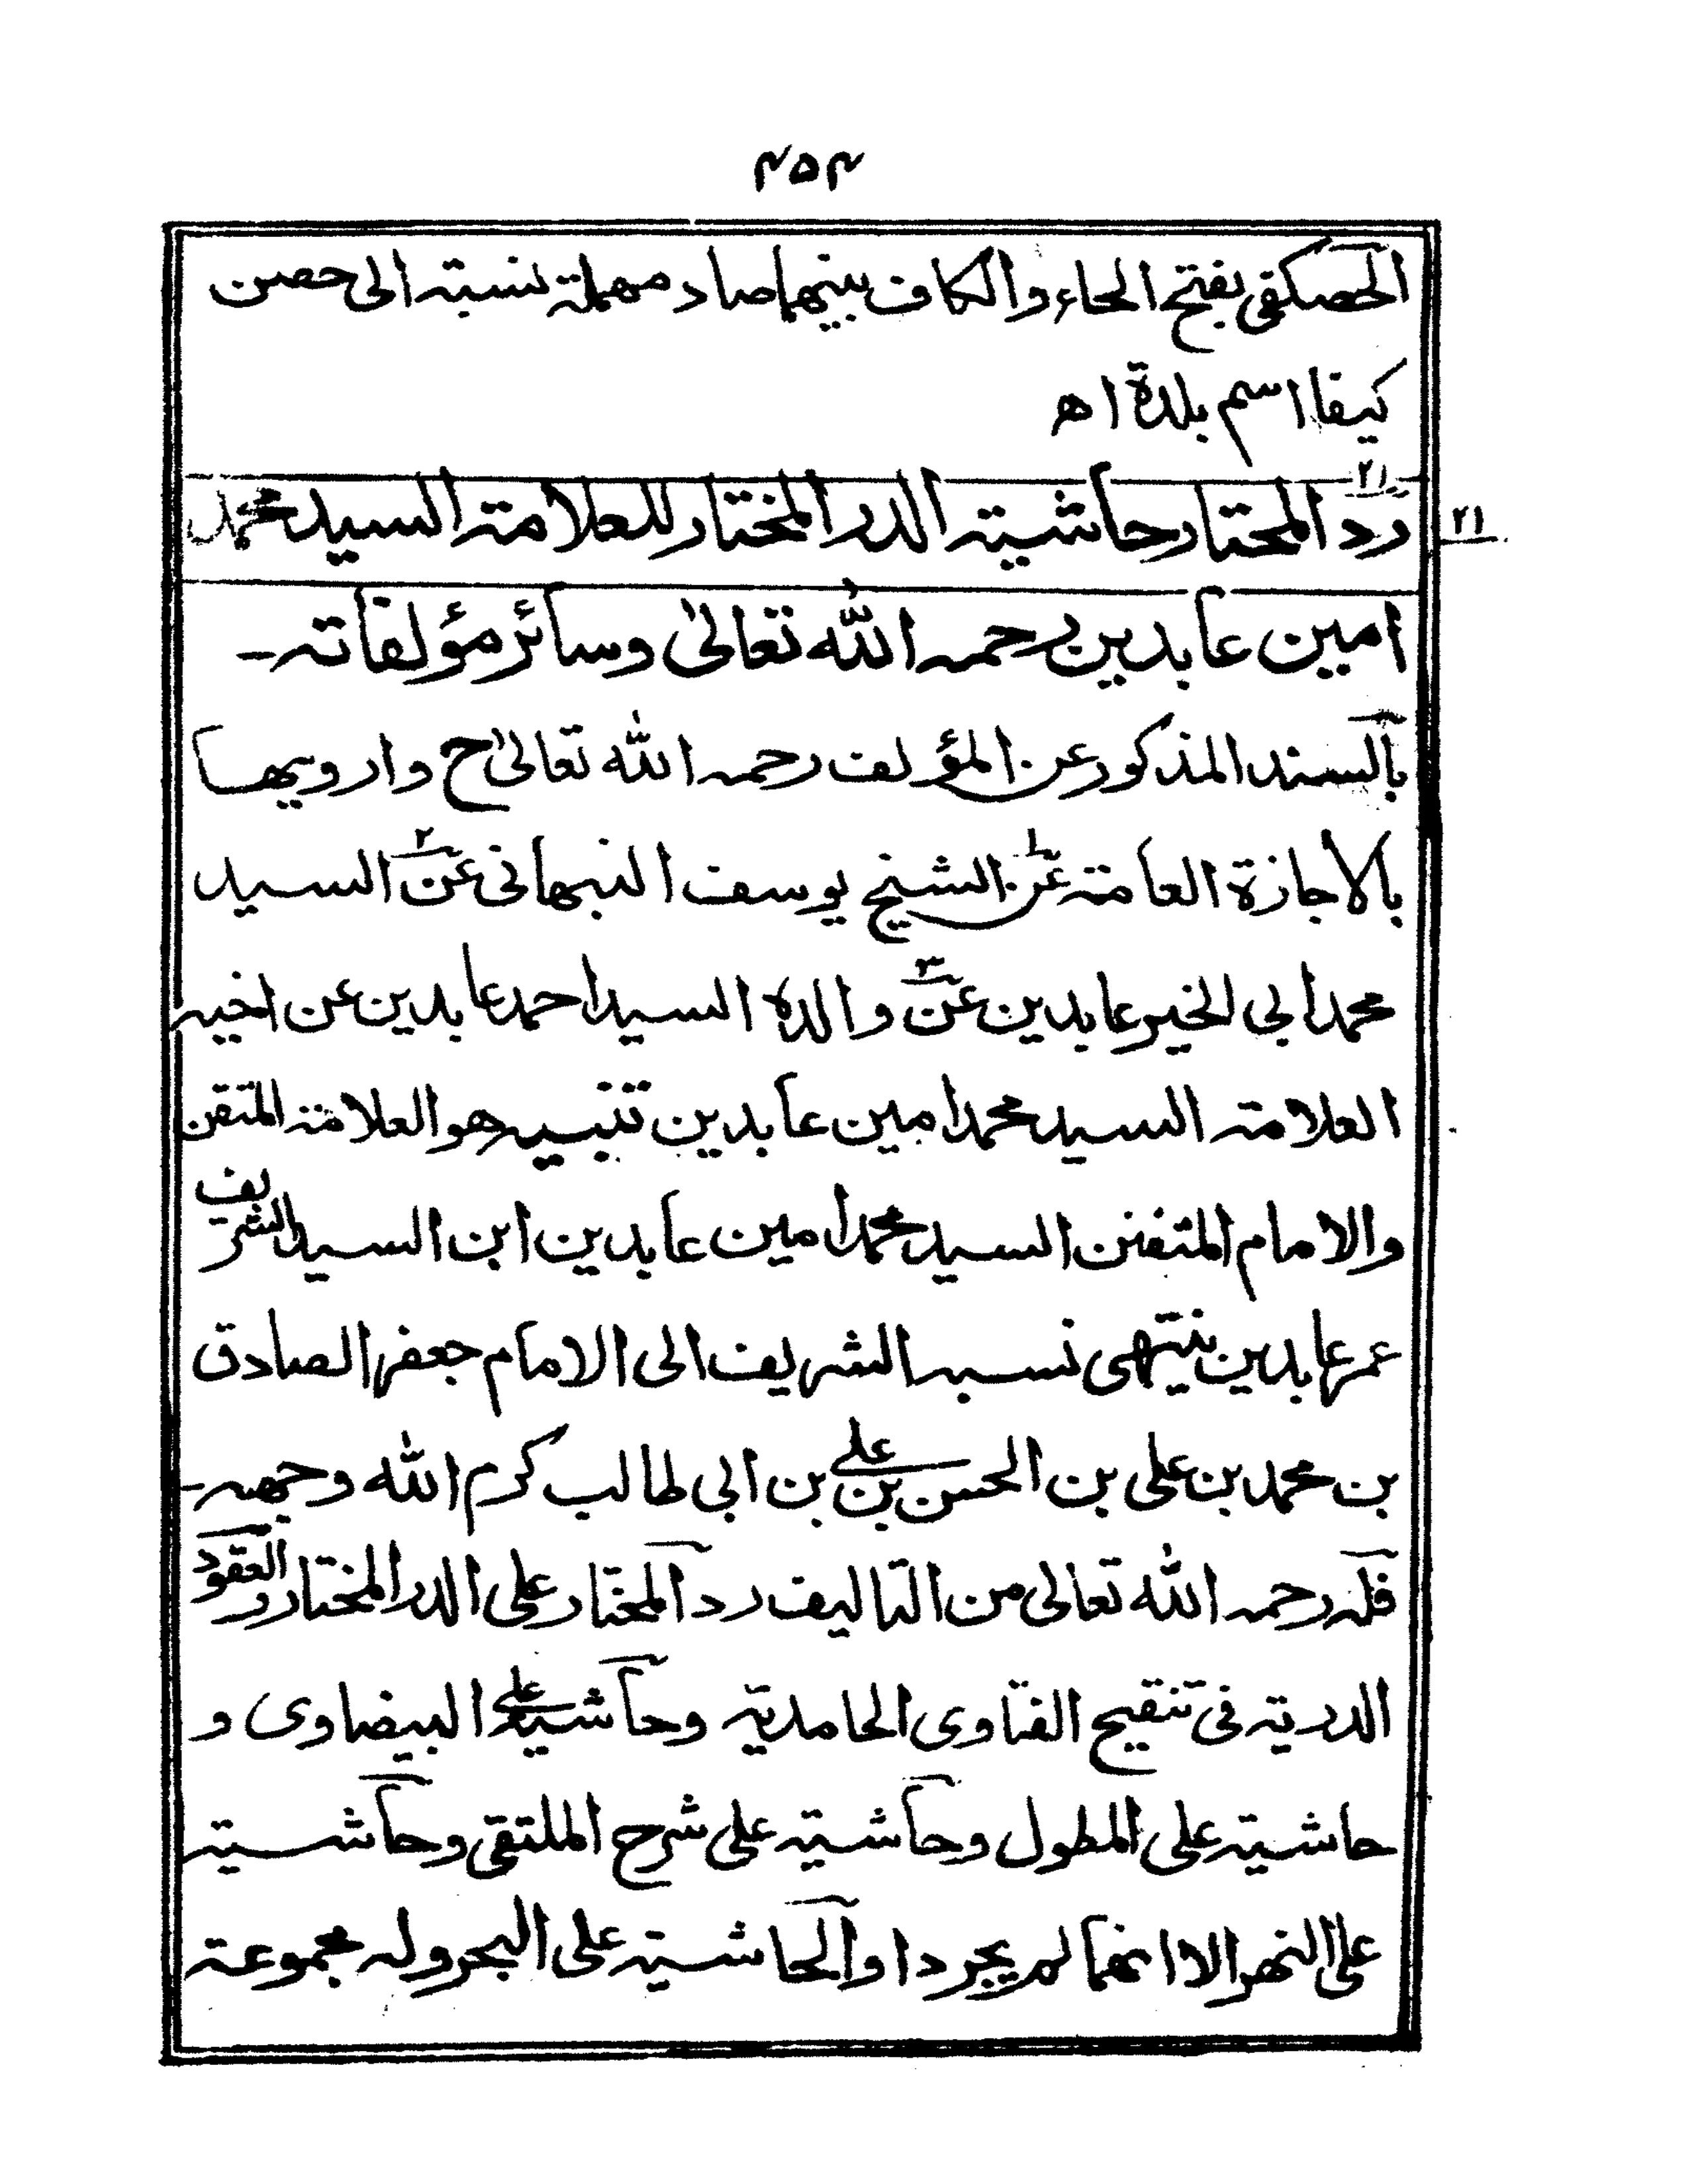 ۴۵۴
الحصكفى بفتح الحاء والكاف بينهما صاد مهملة نسبة الى حصن
كيفا اسم بلدة اھ
رد المحتار حاشية الدر المختار للعلامة السيد محمد
۲۱
امين عابدين رحمه الله تعالىٰ وسائر مؤلفاته۔
بالسند المذكور عن المؤلف رحمه الله تعالىٰ ح وارويها
بالاجازة العامة عن الشيخ يوسف النبهانى عن السيد
محمد ابى الخير عابدين عن والده السيد احمد عابدين عن اخيه
العلامة السيد محمد امين عابدين تنبيه هو العلامة المتقن
والامام المتفنن السيد محمد امين عابدين ابن السيد الشريف
عمر عابدين ينتهى نسبه الشريف الى الامام جعفر الصادق
بن محمد بن على بن الحسن بن على بن ابى طالب كرم الله وجهه۔
فله رحمه الله تعالى من التاليف رد المختار على الدر المختار و العقود
الدرية فى تنقيح الفتاوى الحامدية وحاشية على البيضاوى و
حاشية على المطول وحاشية على شرح الملتقى وحاشية
على النهر الا انهما لم يجردا والحاشية على البحر وله مجموعة